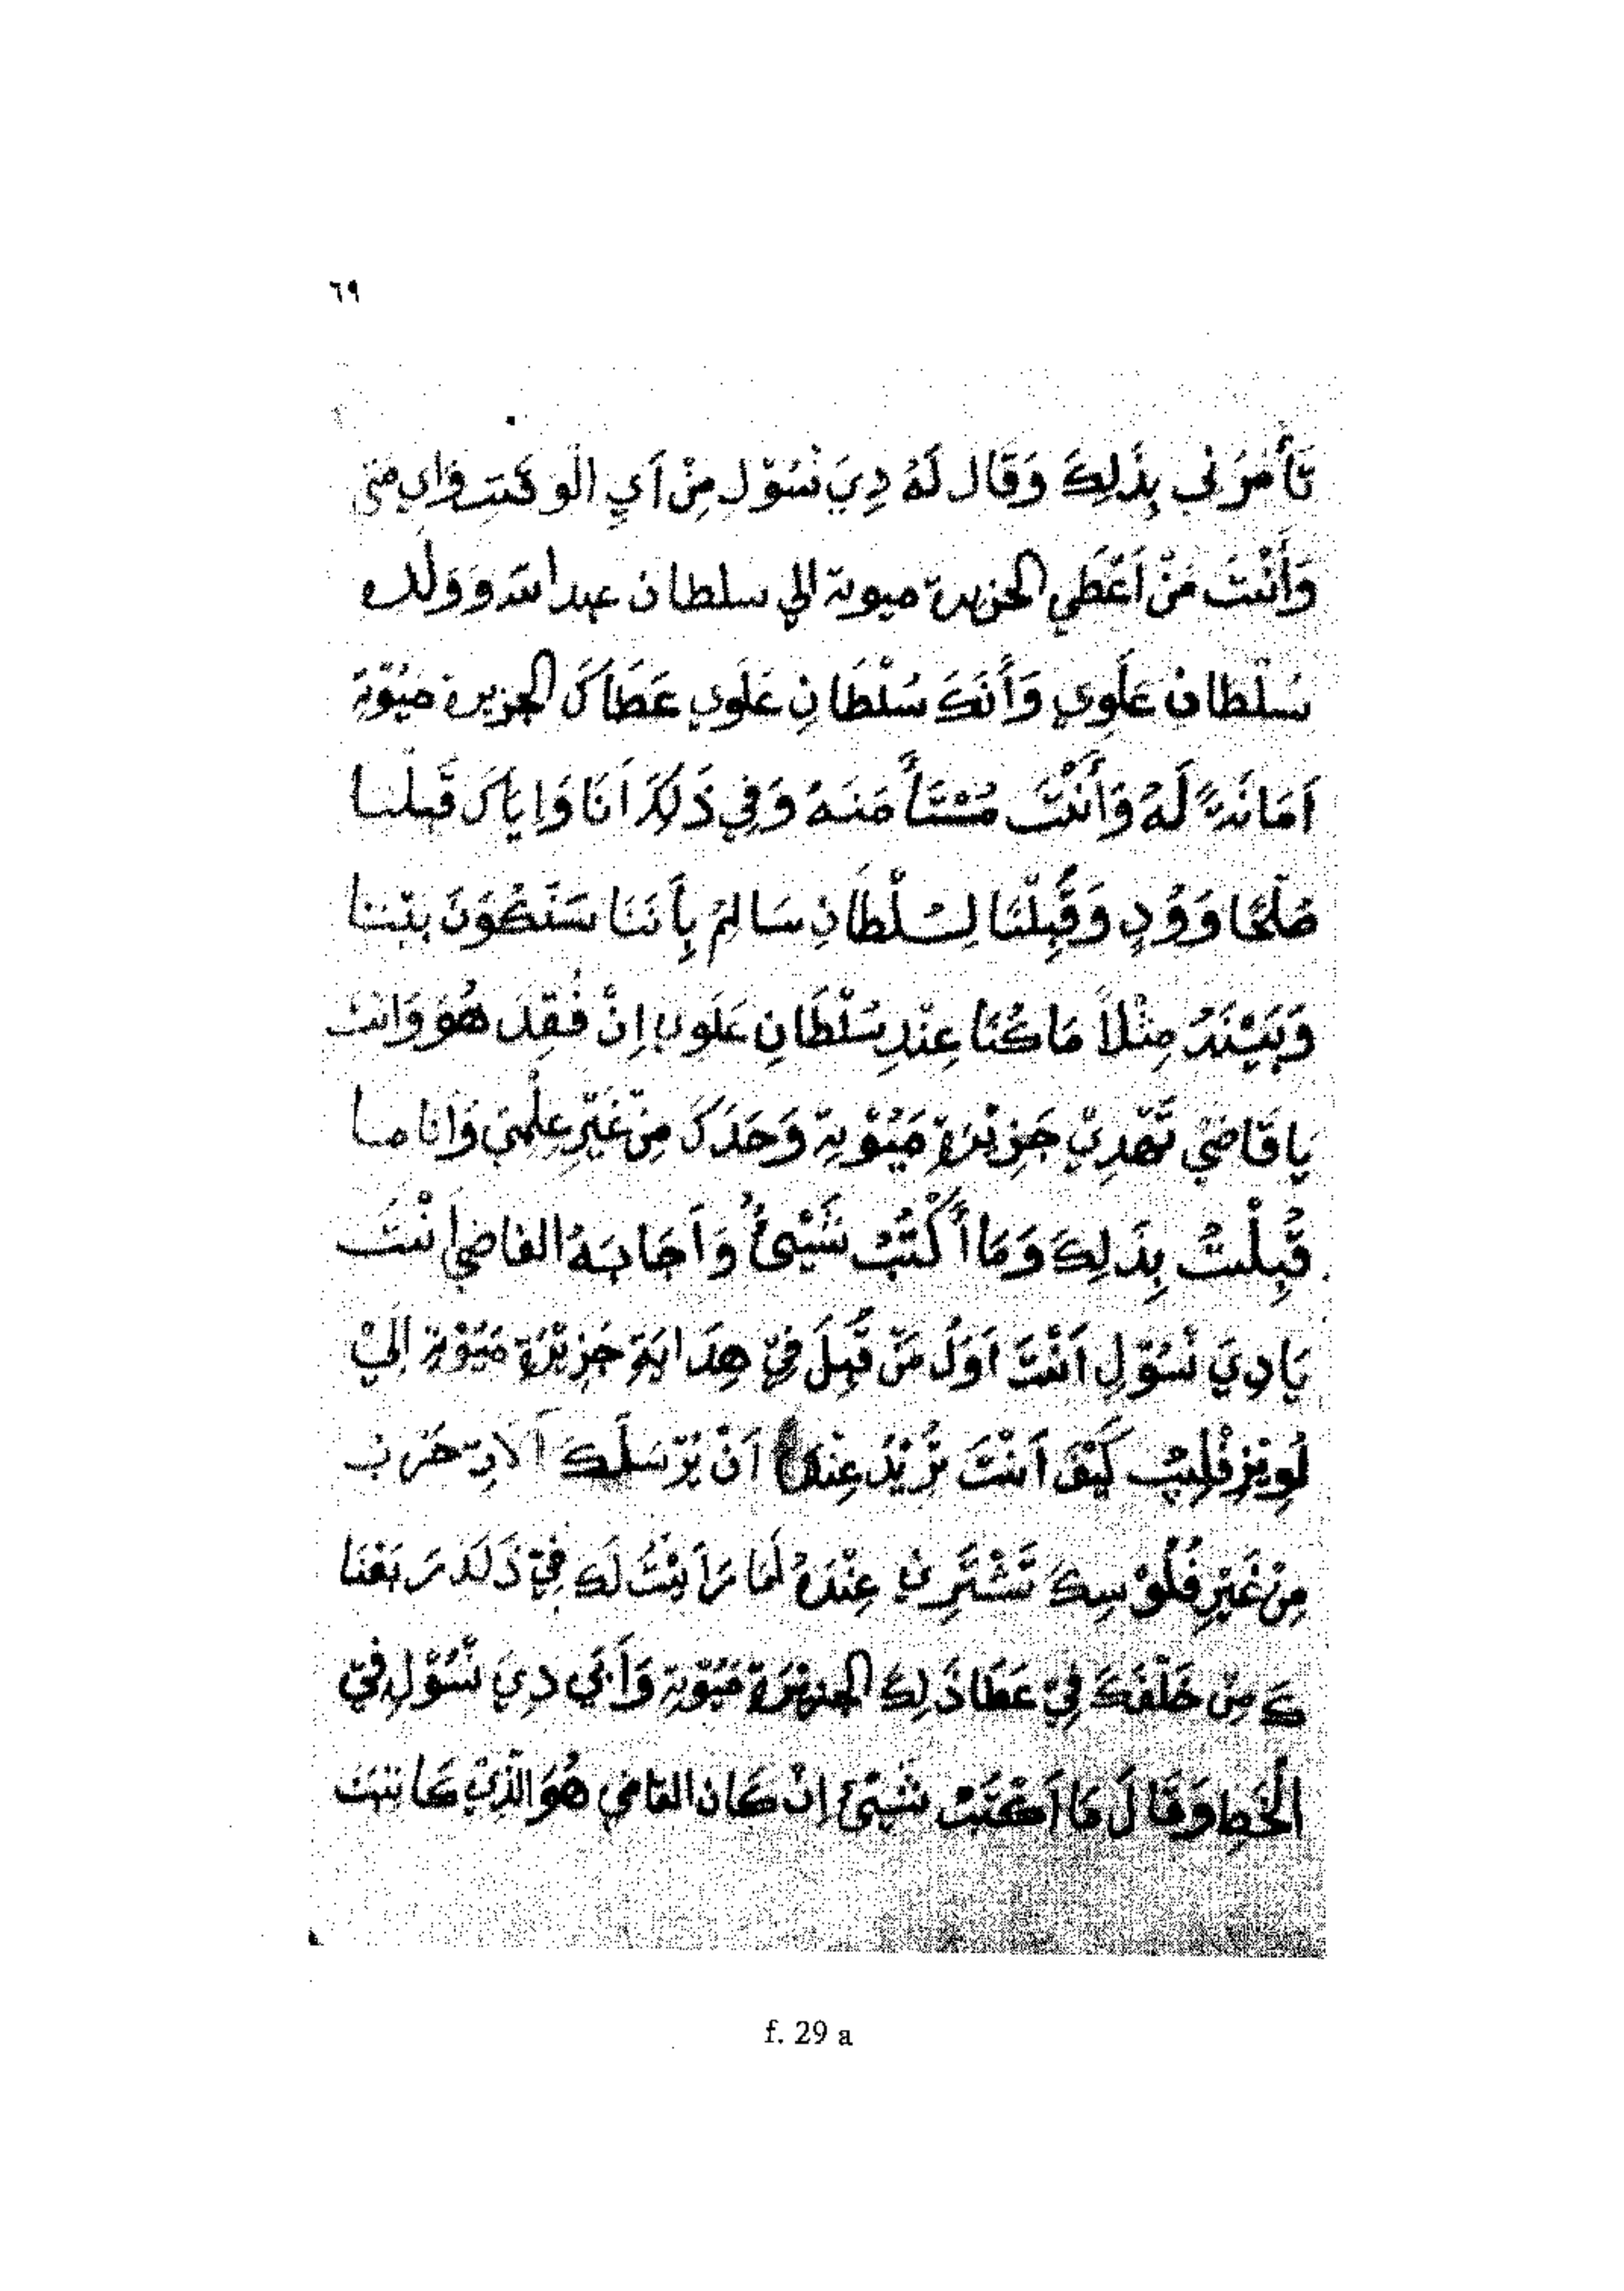 ٦٩
تَأْمُرُنِي بِذَلِكَ وَقَالَ لَهُ دِيَ نْسُوْلِ مِنْ اَيِ الْوَقَتِ وَاي مَتى
وَأَنْتَ مَنْ اَعْطَي الجزيرة ميوتة الي سلطان عبد الله وولده
سُلْطان عَلَوِي وَأَنَكَ سُلْطَانِ عَلَوِي عَطَاكَ الجزيرة مَيُوْتَةِ
اَمَانَةً لَهُ وَأَنْتَ مُسْتَأْمَنَهُ وَفِي ذَلِكَ اَنَا وَاِياكَ قَبِلْنا
صُلْحًا وَوُدٍ وَقَبِلْنَا لِسُلْطَانِ سَالِمْ بِأَنَنَا سَنَكُوَنَ بيْنَنا
وَبَيْنَهُ مِثْلاً مَا كُنَا عِنْدِ سُلْطَانِ عَلَوِي اِنْ فُقِدَ هُوَ وَانتَ
يَا قَاضِي تَهْدِيْ جَزِيْرَةِ مَيُوْتِةِ وَحَدَكَ مِنْ غَيْرِ عِلْمِيَ وَانَا مـا
قَبِلْتُ بِذَلِكَ وَمَا أَكْتُبْ شَيْئُ وَاَجَابَهُ القاضي انْتَ
يَا دِيَ نْسُوْلِ اَنْتَ اَوَلُ مَنْ قَبِلَ فِيْ هِدَايَةِ جَزِيْرَةِ مَيُوْتِةِ اِلَيْ
لُوِيْزِ فْلِيبْ كَيْفَ اَنْتَ تُرِيْدُ عِنْدِي اَنْ يُرْسَلَكَ اَلادِ حَرَب
مِنْ غَيْرِ فُلُوْسِكَ تَشْتَرِي عِنْدَهُ لَمَا رَاَيْتُ لَكَ فِيْ ذَلَكَ رَبَعْنَا
كَ مِنْ خَلْفَكَ فِيْ عَطَا ذَلِكَ الجزِيْرَةِ مَيُوْتِةِ وَأَبَي دِيَ نْسُوْلِ فِيْ
الْخَطِ وَقَالَ مَا اَكْتَبْ شَيْئُ اِنْ كَانَ القاضِي هُوَ الَّذِيْ كَانَتْ
f. 29 a